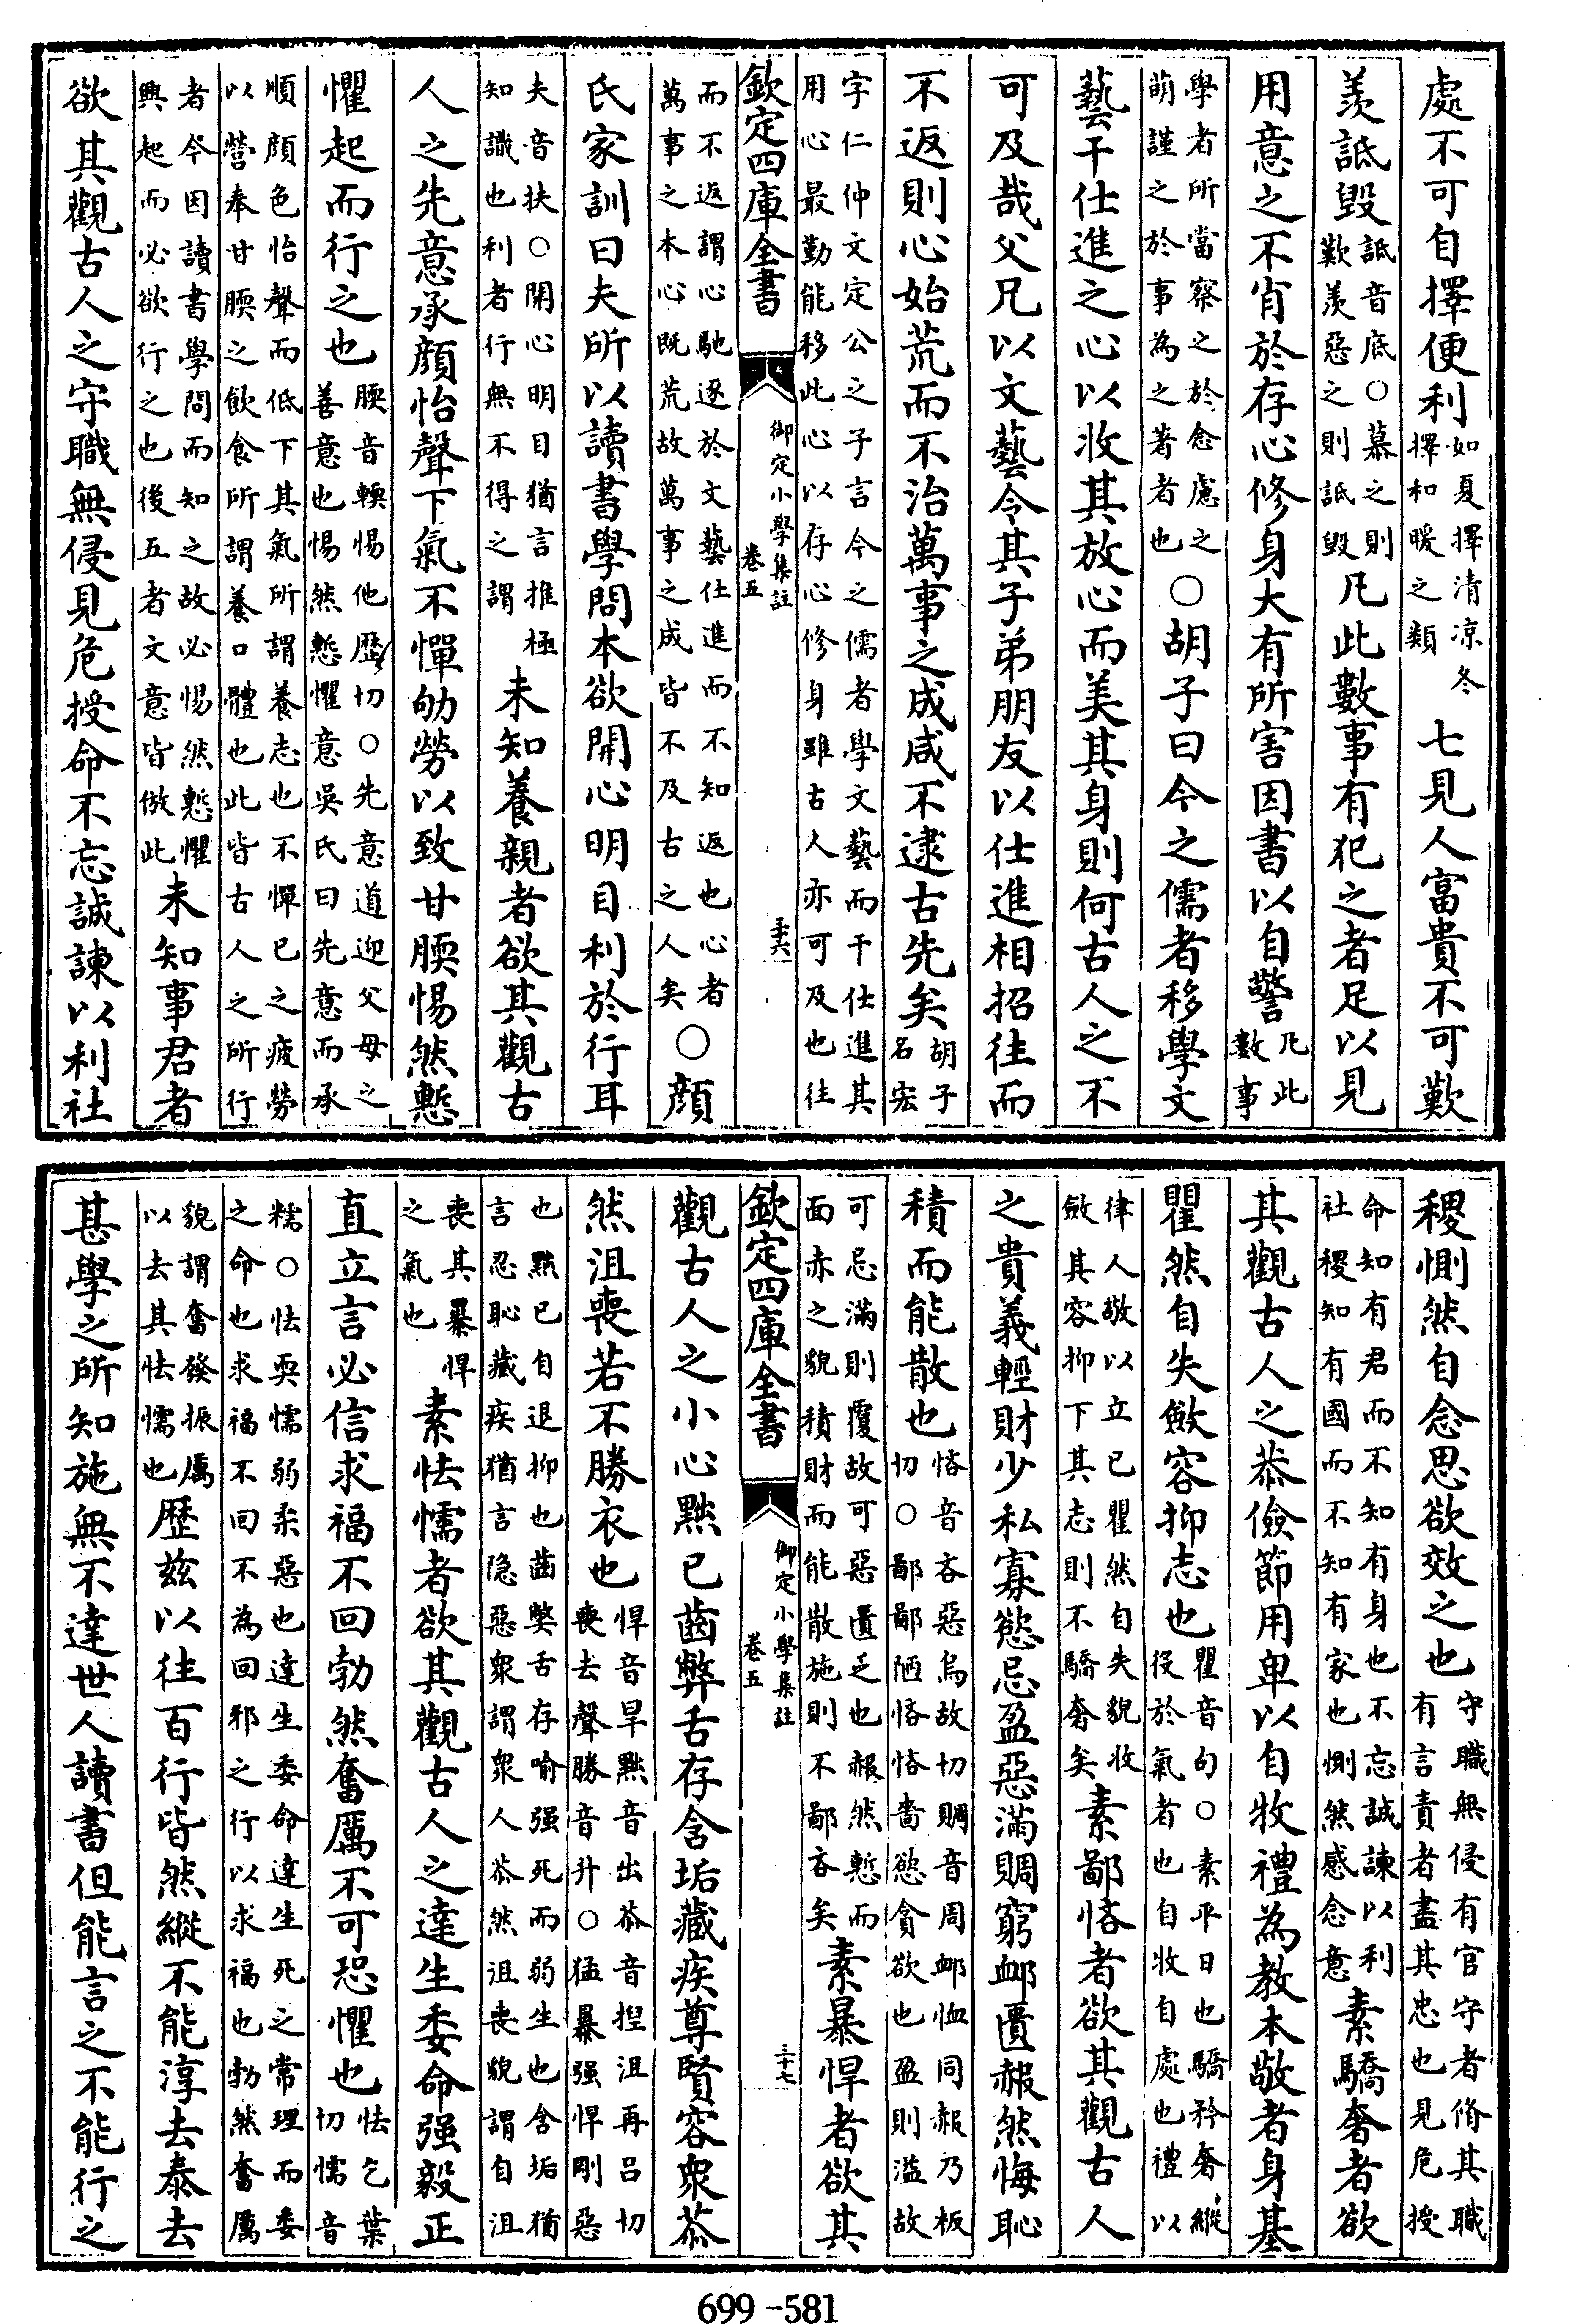 處不可自擇便利如夏擇清凉冬擇和暖之類七見人富貴不可歎
羨詆毀詆音底○慕之則歎羨惡之則詆毀凡此數事有犯之者足以見
用意之不肖於存心修身大有所害因書以自警凡此數事
學者所當察之於念慮之萌謹之於事為之著者也○胡子曰今之儒者移學文
藝干仕進之心以收其放心而美其身則何古人之不
可及哉父兄以文藝令其子弟朋友以仕進相招往而
不返則心始荒而不治萬事之成咸不逮古先矣胡子名宏
字仁仲文定公之子言今之儒者學文藝而干仕進其用心最勤能移此心以存心修身雖古人亦可及也往
欽定四庫全書 御定小學集註 卷五 三十六
而不返謂心馳逐於文藝仕進而不知返也心者萬事之本心既荒故萬事之成皆不及古之人矣○顔
氏家訓曰夫所以讀書學問本欲開心明目利於行耳
夫音扶○開心明目猶言推極知識也利者行無不得之謂未知養親者欲其觀古
人之先意承顔怡聲下氣不憚劬勞以致甘腝惕然慙
懼起而行之也腝音輭惕他歴切○先意道迎父母之善意也惕然慙懼意吳氏曰先意而承
順顔色怡聲而低下其氣所謂養志也不憚己之疲勞以營奉甘腝之飲食所謂養口體也此皆古人之所行
者今因讀書學問而知之故必惕然慙懼興起而必欲行之也後五者文意皆倣此未知事君者
欲其觀古人之守職無侵見危授命不忘誠諫以利社
稷惻然自念思欲效之也守職無侵有官守者脩其職有言責者盡其忠也見危授
命知有君而不知有身也不忘誠諫以利社稷知有國而不知有家也惻然感念意素驕奢者欲
其觀古人之恭儉節用卑以自牧禮為教本敬者身基
瞿然自失斂容抑志也瞿音句○素平日也驕矜奢縱役於氣者也自牧自處也禮以
律人敬以立己瞿然自失貌收斂其容抑下其志則不驕奢矣素鄙悋者欲其觀古人
之貴義輕財少私寡慾忌盈惡滿賙窮卹匱赧然悔恥
積而能散也悋音吝惡烏故切賙音周卹恤同赧乃板切○鄙鄙陋悋悋嗇慾貪欲也盈則溢故
可忌滿則覆故可惡匱乏也赧然慙而面赤之貌積財而能散施則不鄙吝矣素暴悍者欲其
欽定四庫全書 御定小學集註 卷五 三十七
觀古人之小心黜己齒弊舌存含垢藏疾尊賢容衆苶
然沮喪若不勝衣也悍音旱黜音出苶音揑沮再呂切喪去聲勝音升○猛暴强悍剛惡
也黜己自退抑也齒弊舌存喻强死而弱生也含垢猶言忍恥藏疾猶言隐惡衆謂衆人苶然沮喪貌謂自沮
喪其暴悍之氣也素怯懦者欲其觀古人之達生委命强毅正
直立言必信求福不回勃然奮厲不可恐懼也怯乞葉切懦音
糯○怯耎懦弱柔惡也達生委命達生死之常理而委之命也求福不回不為回邪之行以求福也勃然奮厲
貌謂奮發振厲以去其怯懦也歴茲以往百行皆然縱不能淳去泰去
甚學之所知施無不達世人讀書但能言之不能行之
699-581